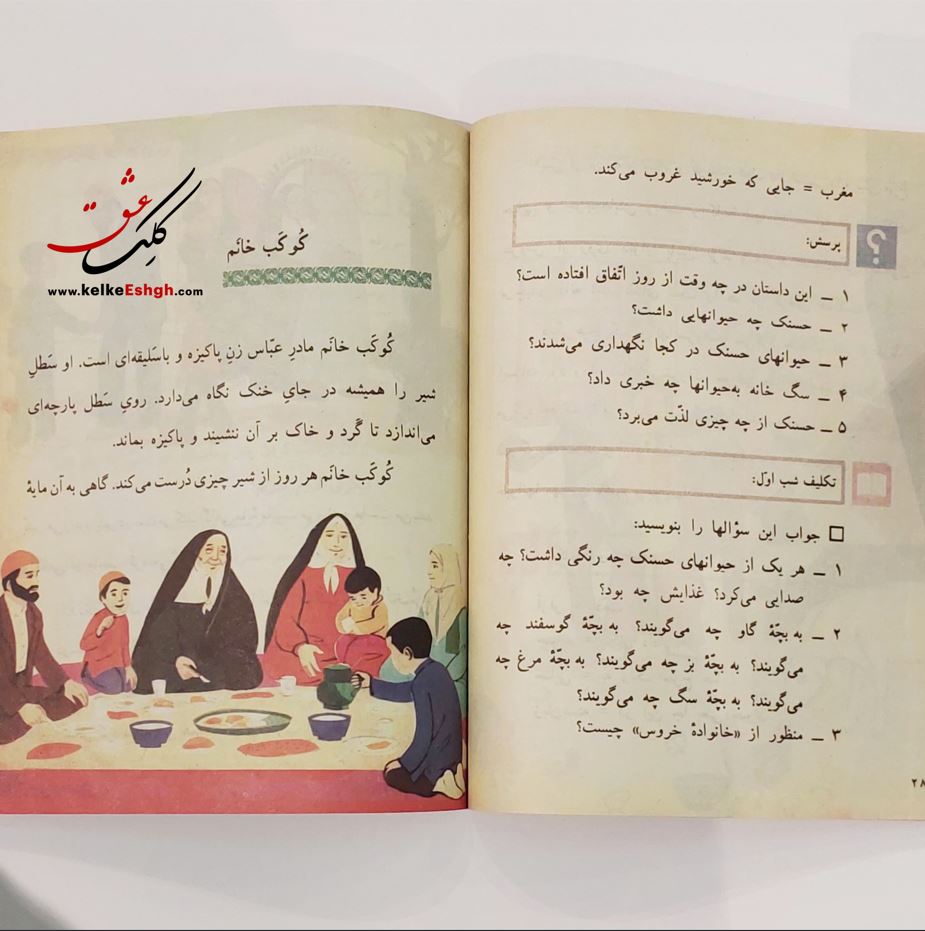 مغرب = جایی که خورشید غروب می‌کند.
؟
پرسش:
۱ ــ این داستان در چه وقت از روز اتّفاق افتاده است؟
۲ ــ حسنک چه حیوانهایی داشت؟
۳ ــ حیوانهای حسنک در کجا نگهداری می‌شدند؟
۴ ــ سگ خانه به‌حیوانها چه خبری داد؟
۵ ــ حسنک از چه چیزی لذّت می‌برد؟
تکلیف شب اوّل:
جواب این سؤالها را بنویسید:
۱ ــ هر یک از حیوانهای حسنک چه رنگی داشت؟ چه
صدایی می‌کرد؟ غذایش چه بود؟
۲ ــ به بچّهٔ گاو چه می‌گویند؟ به بچّهٔ گوسفند چه
می‌گویند؟ به بچّهٔ بز چه می‌گویند؟ به بچّهٔ مرغ چه
می‌گویند؟ به بچّهٔ سگ چه می‌گویند؟
۳ ــ منظور از «خانوادهٔ خروس» چیست؟
۲۸
کلک عشق
www.kelkeEshgh.com
کُوکَب خانَم
کُوکَب خانَم مادرِ عبّاس زنِ پاکیزه و باسَلیقه‌ای است. او سَطلِ
شیر را همیشه در جایِ خنک نگاه می‌دارد. رویِ سَطل پارچه‌ای
می‌اندازد تا گَرد و خاک بر آن ننشیند و پاکیزه بماند.
کُوکَب خانَم هر روز از شیر چیزی دُرست می‌کند. گاهی به آن مایهٔ